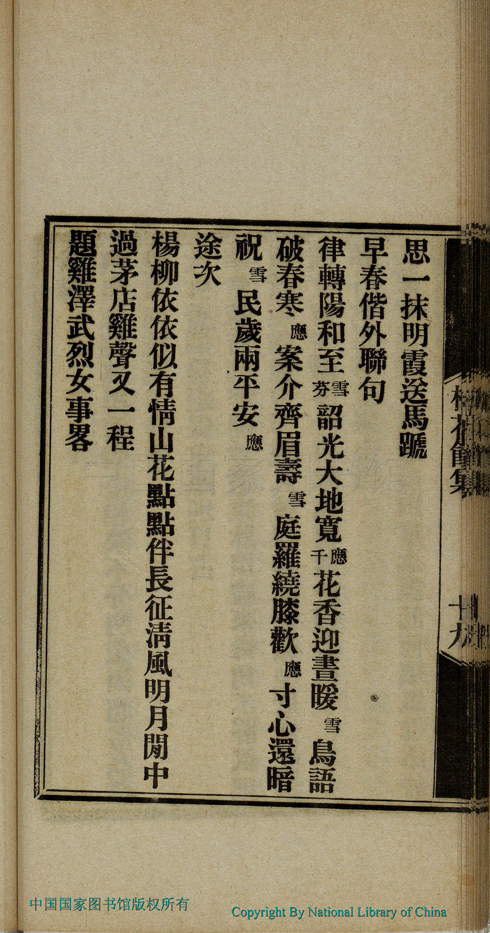 思一抹明霞送馬蹏
早春偕外聯句
律轉陽和至雪芬韶光大地寬應千花香迎晝暖雪鳥語
破春寒應案介齊眉壽雪庭羅繞膝歡應寸心還暗
祝雪民歲兩平安應
途次
楊柳依依似有情山花點點伴長征淸風明月閒中
過茅店雞聲又一程
題雞澤武烈女事畧
十九
中国国家图书馆版权所有
Copyright By National Library of China